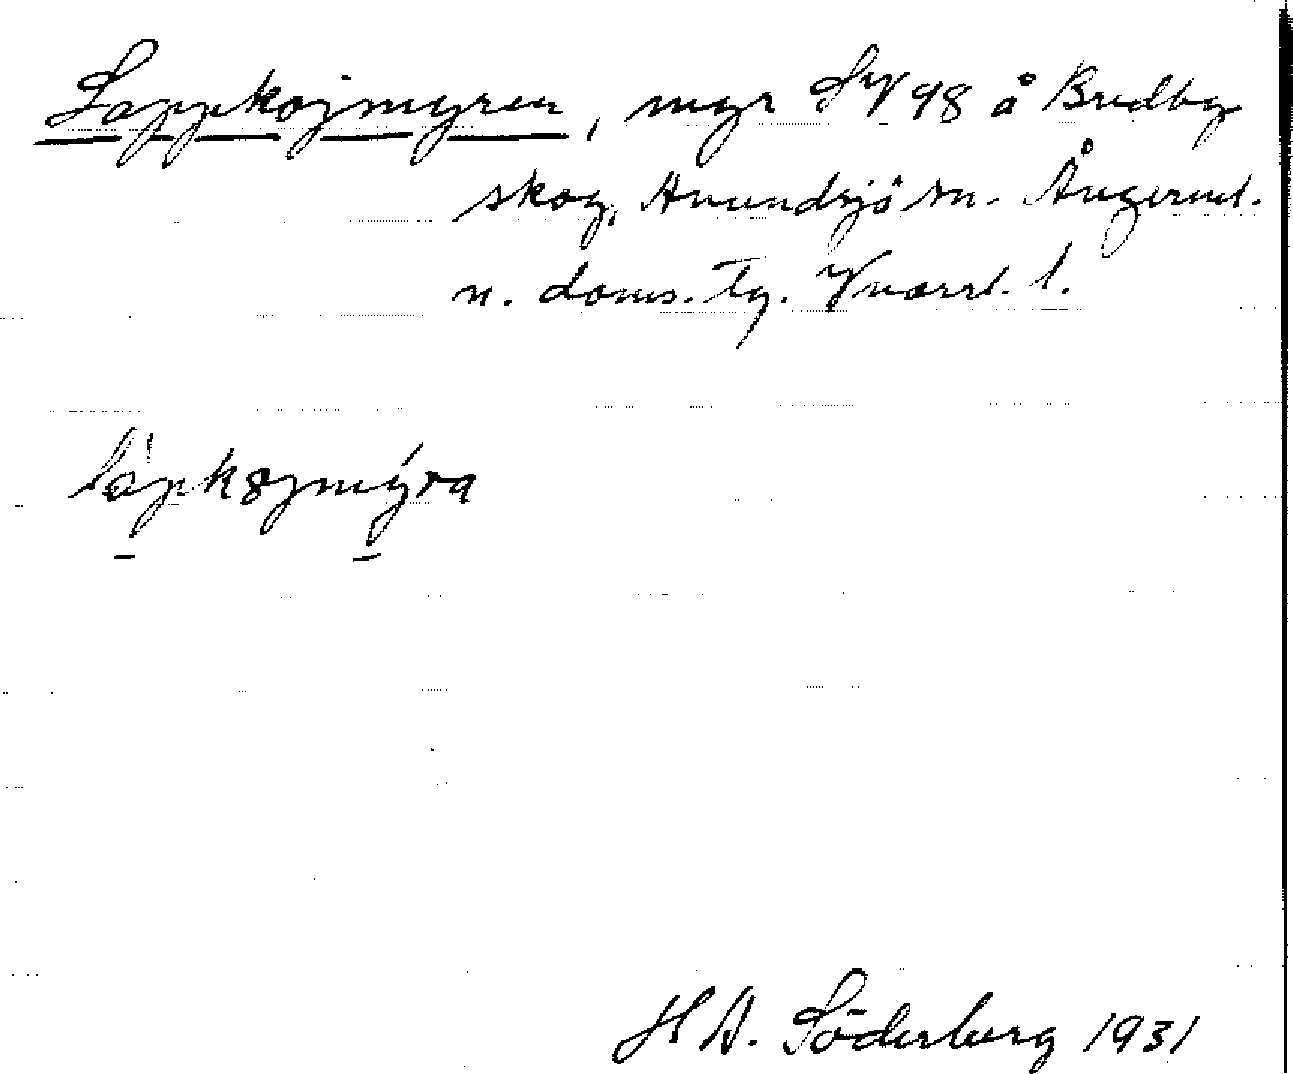 Lappkojmyren, myr SV 98 å Bredby
skog, Anundsjö sn. Ångerml.
n. doms. tg. Vnorrl. l.
làpkojmýra
H A. Söderberg 1931